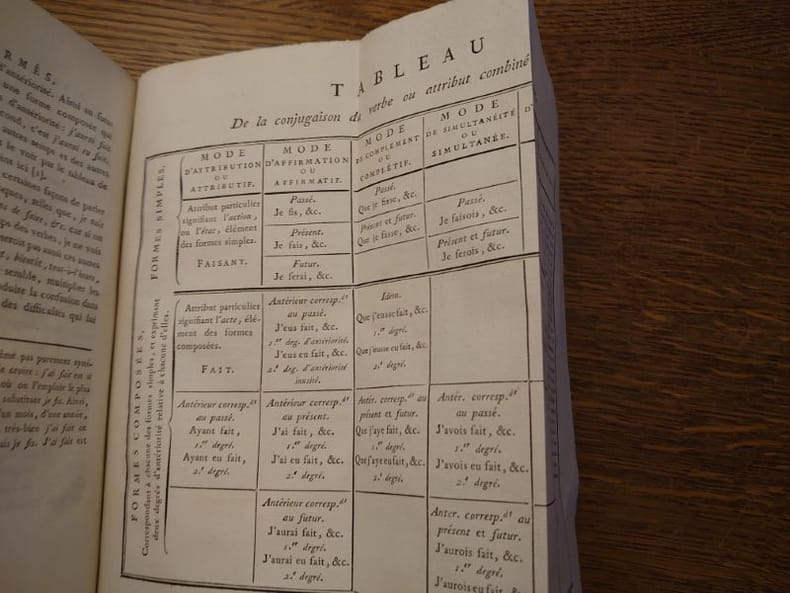 RMÉS.
d'antériorité. Ainsi au futur
une forme composée qui
d'antériorité : j'aurai fait
cond, c'est j'aurai eu fait,
autres tems et des autres
le voir par le tableau de
ins ici [2].
certaines façons de parler
ques, telles que, je vois
de faire, &c. car si on
ps des verbes, je ne vois
seroit pas aussi ces autres
, bientôt, tout-à-l'heure,
semble, multiplier les
oduire la confusion dans
des difficultés qui lui
ême pas purement syné-
croire : j'ai fait est si
où on l'emploie le plus
substituer je fis. Ainsi,
'un mois, d'une année,
très-bien j'ai fait ce
ais je fis. J'ai fait est
TABLEAU
De la conjugaison du verbe ou attribut combiné
FORMES SIMPLES.
MODE
D'ATTRIBUTION
OU
ATTRIBUTIF.
MODE
D'AFFIRMATION
OU
AFFIRMATIF.
MODE
DE COMPLÉMENT
OU
COMPLÉTIF.
MODE
DE SIMULTANÉITÉ
OU
SIMULTANÉE.
D'
Attribut particulier
signifiant l'action,
ou l'état, élément
des formes simples.
FAISANT.
Passé.
Je fis, &c.
Présent.
Je fais, &c.
Futur.
Je ferai, &c.
Passé.
Que je fisse, &c.
Présent et futur.
Que je fasse, &c.
Passé.
Je faisois, &c.
Présent et futur.
Je ferois, &c.
FORMES COMPOSÉES,
Correspondant à chacune des formes simples, et exprimant
deux degrés d'antériorité relative à chacune d'elles.
Attribut particulier
signifiant l'acte, élé-
ment des formes
composées.
FAIT.
Antérieur corresp.dt
au passé.
J'eus fait, &c.
1.er deg. d'antériorité
J'eus eu fait, &c.
2.e deg. d'antériorité
inusité.
Idem.
Que j'eusse fait, &c.
1.er degré.
Que j'eusse eu fait, &c.
2.e degré.
Antérieur corresp.dt
au passé.
Ayant fait,
1.er degré.
Ayant eu fait,
2.e degré.
Antérieur corresp.dt
au présent.
J'ai fait, &c.
1.er degré.
J'ai eu fait, &c.
2.e degré.
Antér. corresp.dt au
présent et futur.
Que j'aye fait, &c.
1.er degré.
Que j'aye eu fait, &c.
2.e degré.
Antér. corresp.dt
au passé.
J'avois fait, &c.
1.er degré.
J'avois eu fait, &c.
2.e degré.
Antérieur corresp.dt
au futur.
J'aurai fait, &c.
1.er degré.
J'aurai eu fait, &c.
2.e degré.
Anter. corresp.dt au
présent et futur.
J'aurois fait, &c.
1.er degré,
J'aurois eu fait, &c.